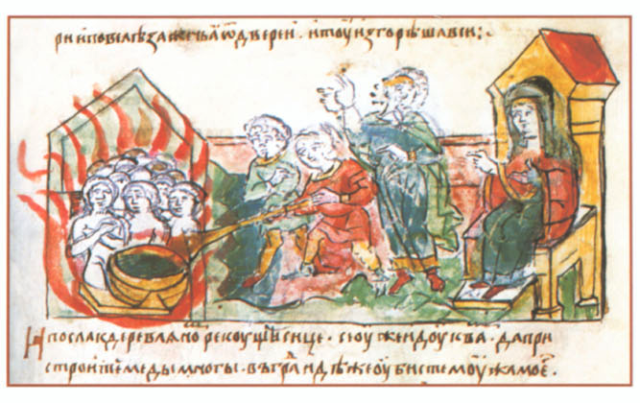 рии и повелѣ зажечьѧ ѿдверей . и тоу изгорѣша вси :
И посла к деревлѧно рекоущѣ сице . се оуже идоу к ва . да при
строите меды многы . въ гра идѣже оубисте моужа мое .